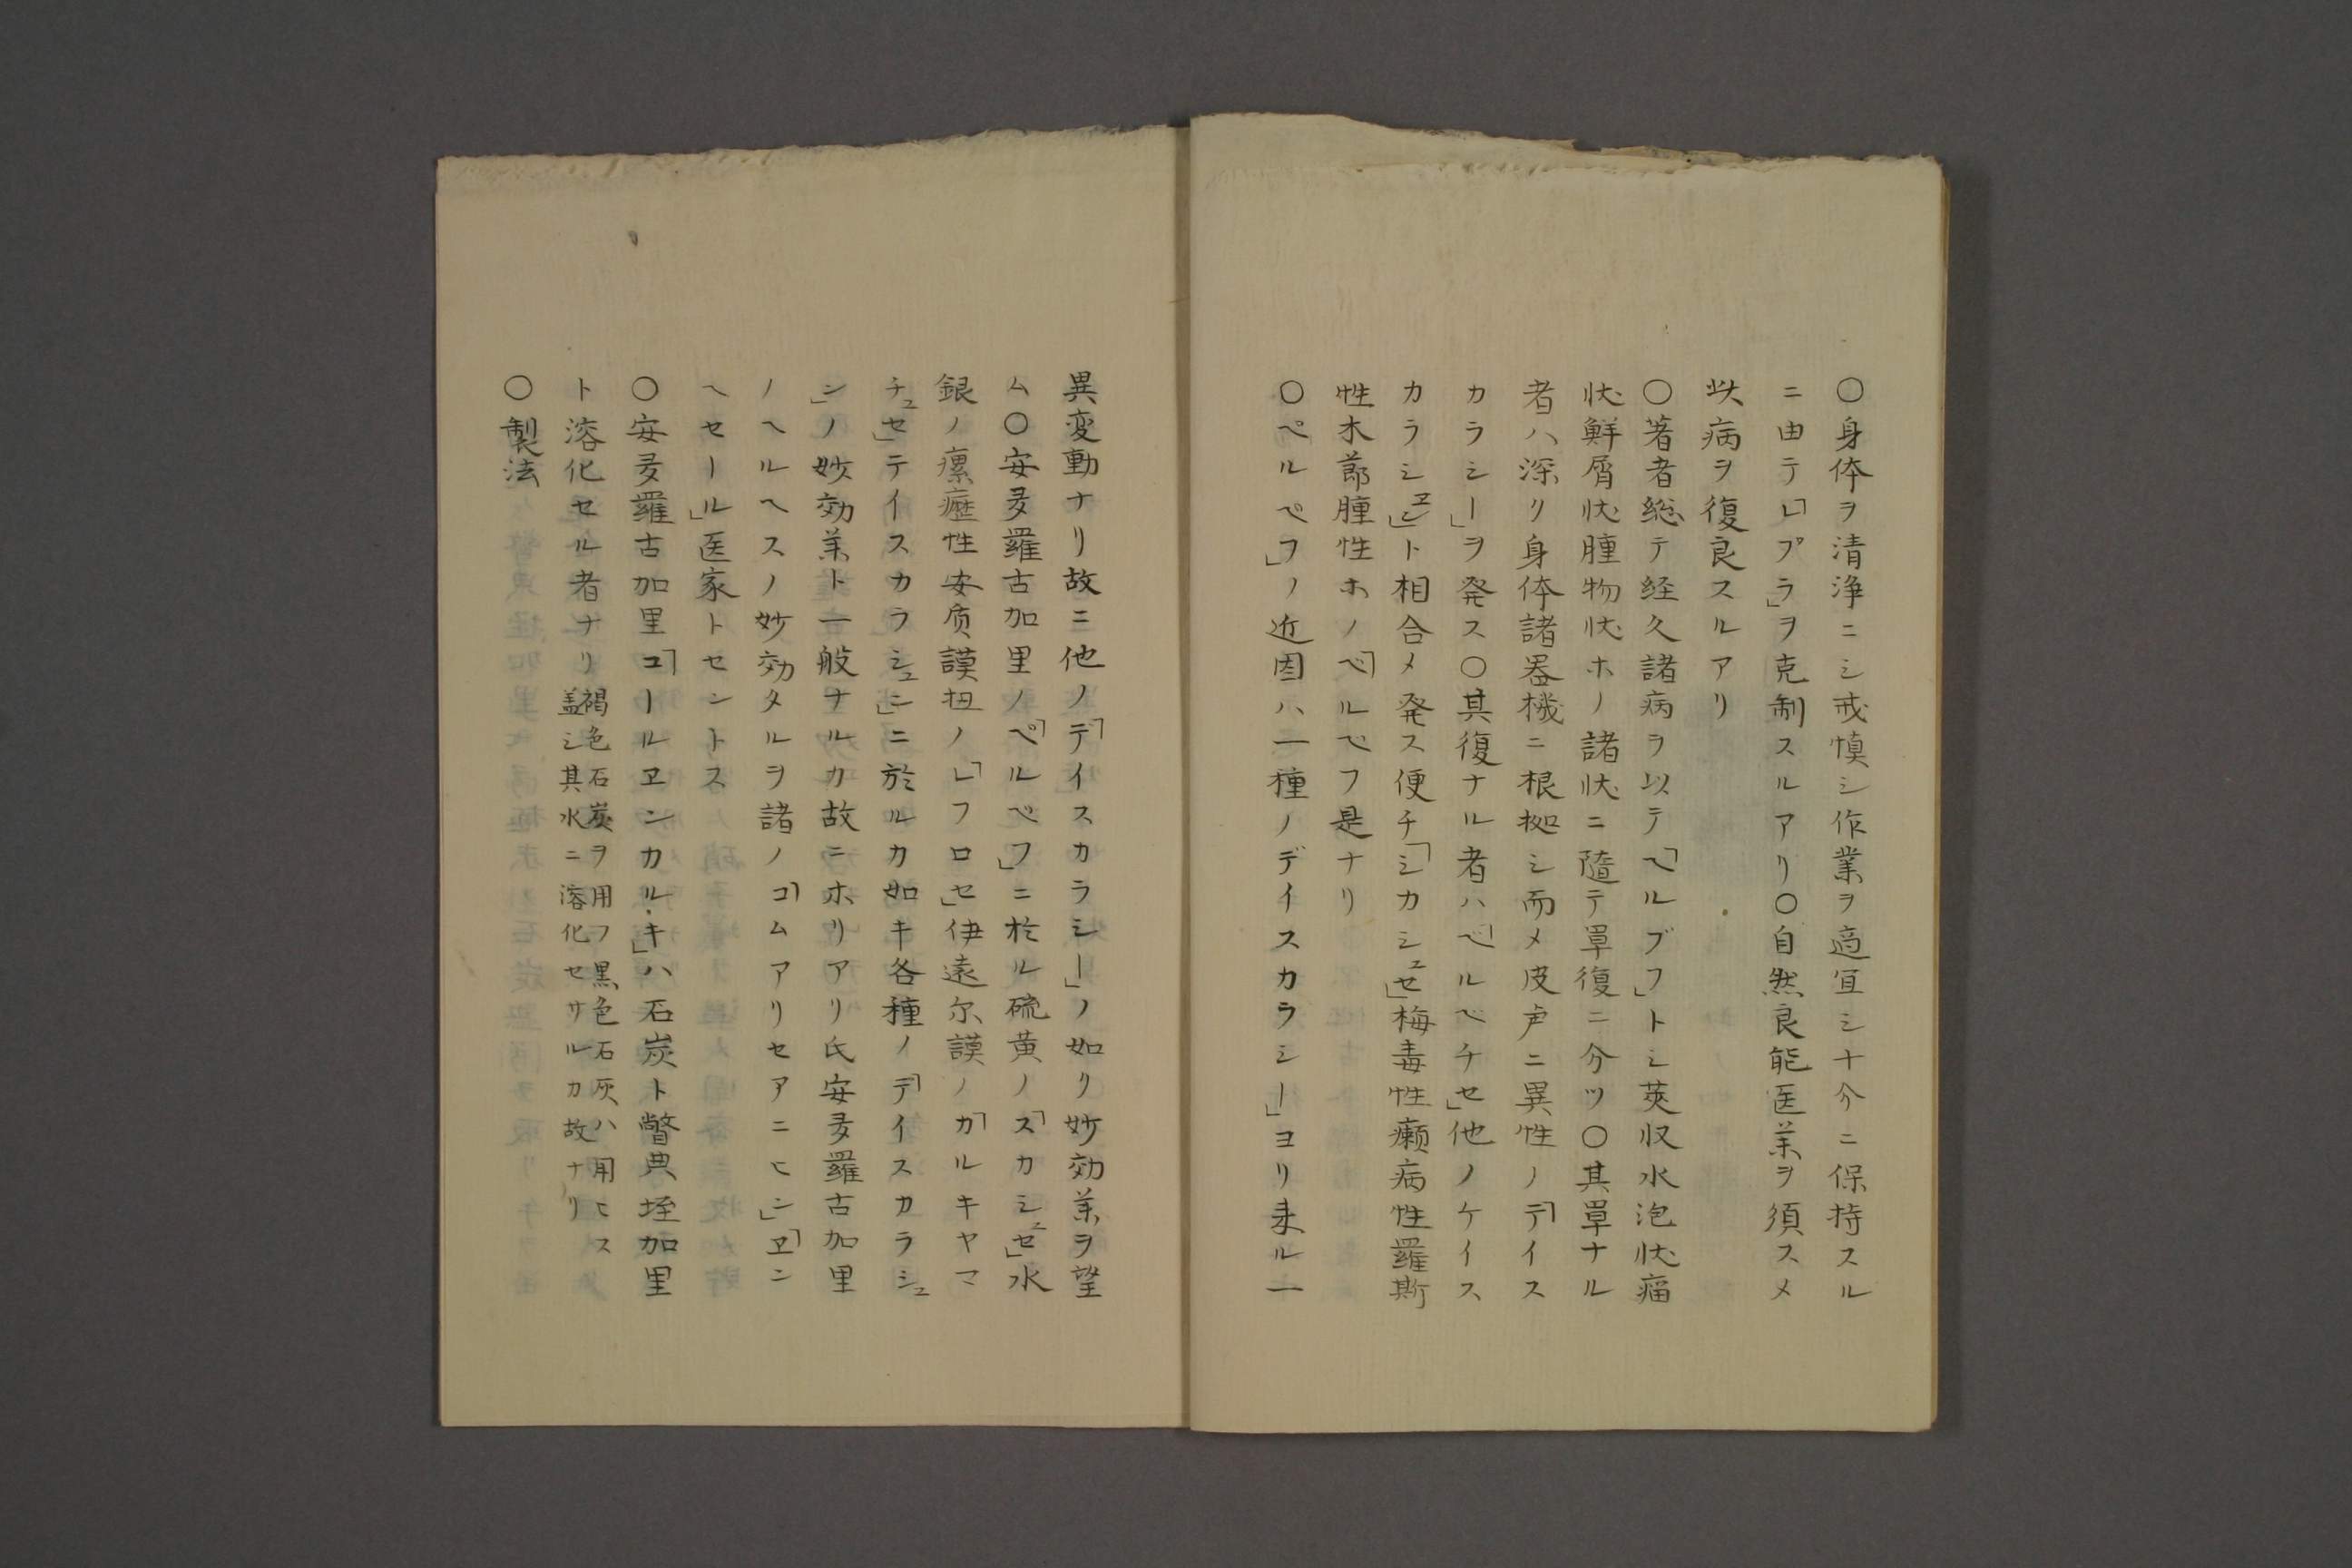 〇身体ヲ清浄ニシ戒慎シ作業ヲ適宜シ十分ニ保持スル
ニ由テ「レプラ」ヲ克制スルアリ〇自然良能医薬ヲ須スメ
此病ヲ復良スルアリ
〇著者総テ経久諸病ヲ以テ「ヘルブフ」トシ莢収水泡状痛
状鮮屑状腫物状ホノ諸状ニ隨テ單復ニ分ツ〇其單ナル
者ハ深リ身体諸器機ニ根拠シ而メ皮声ニ異性ノ「デイス
カラシー」ヲ発ス〇其復ナル者ハ「ペルペチセ」他ノケイス
カラシヱン」ト相合メ発ス便チ「シカシュセ」梅毒性癩病性羅斯
性木蔀腫性ホノ「ペルペフ是ナリ
〇ペルペフ」ノ近因ハ一種ノデイスカラシー」ヨリ来ル一
異変動ナリ故ニ他ノ「デイスカラシー」ノ如リ妙効薬ヲ望
ム〇安多羅古加里ノ「ペルペフ」ニ於ル硫黄ノ「スカシュセ」水
銀ノ瘰癧性安质謨扭ノ「レフロセ」伊遠尓謨ノ「カルキヤマ
チュセ」テイスカラシュン」ニ於ルカ如キ各種ノ「デイスカラシュ
ン」ノ妙効薬ト一般ナルカ故ニホリアリ氏安多羅古加里
ノヘルヘスノ妙効タルヲ諸ノ「コムアリセアニヒン」「ヱン
ヘセール」医家トセントス
〇安多羅古加里「コールヱンカル・キ」ハ石炭ト瞥典垤加里
ト溶化セル者ナリ
褐色石炭ヲ用フ黒色石灰ハ用ヒス
盖シ其水ニ溶化セサルカ故ナリ
〇製法